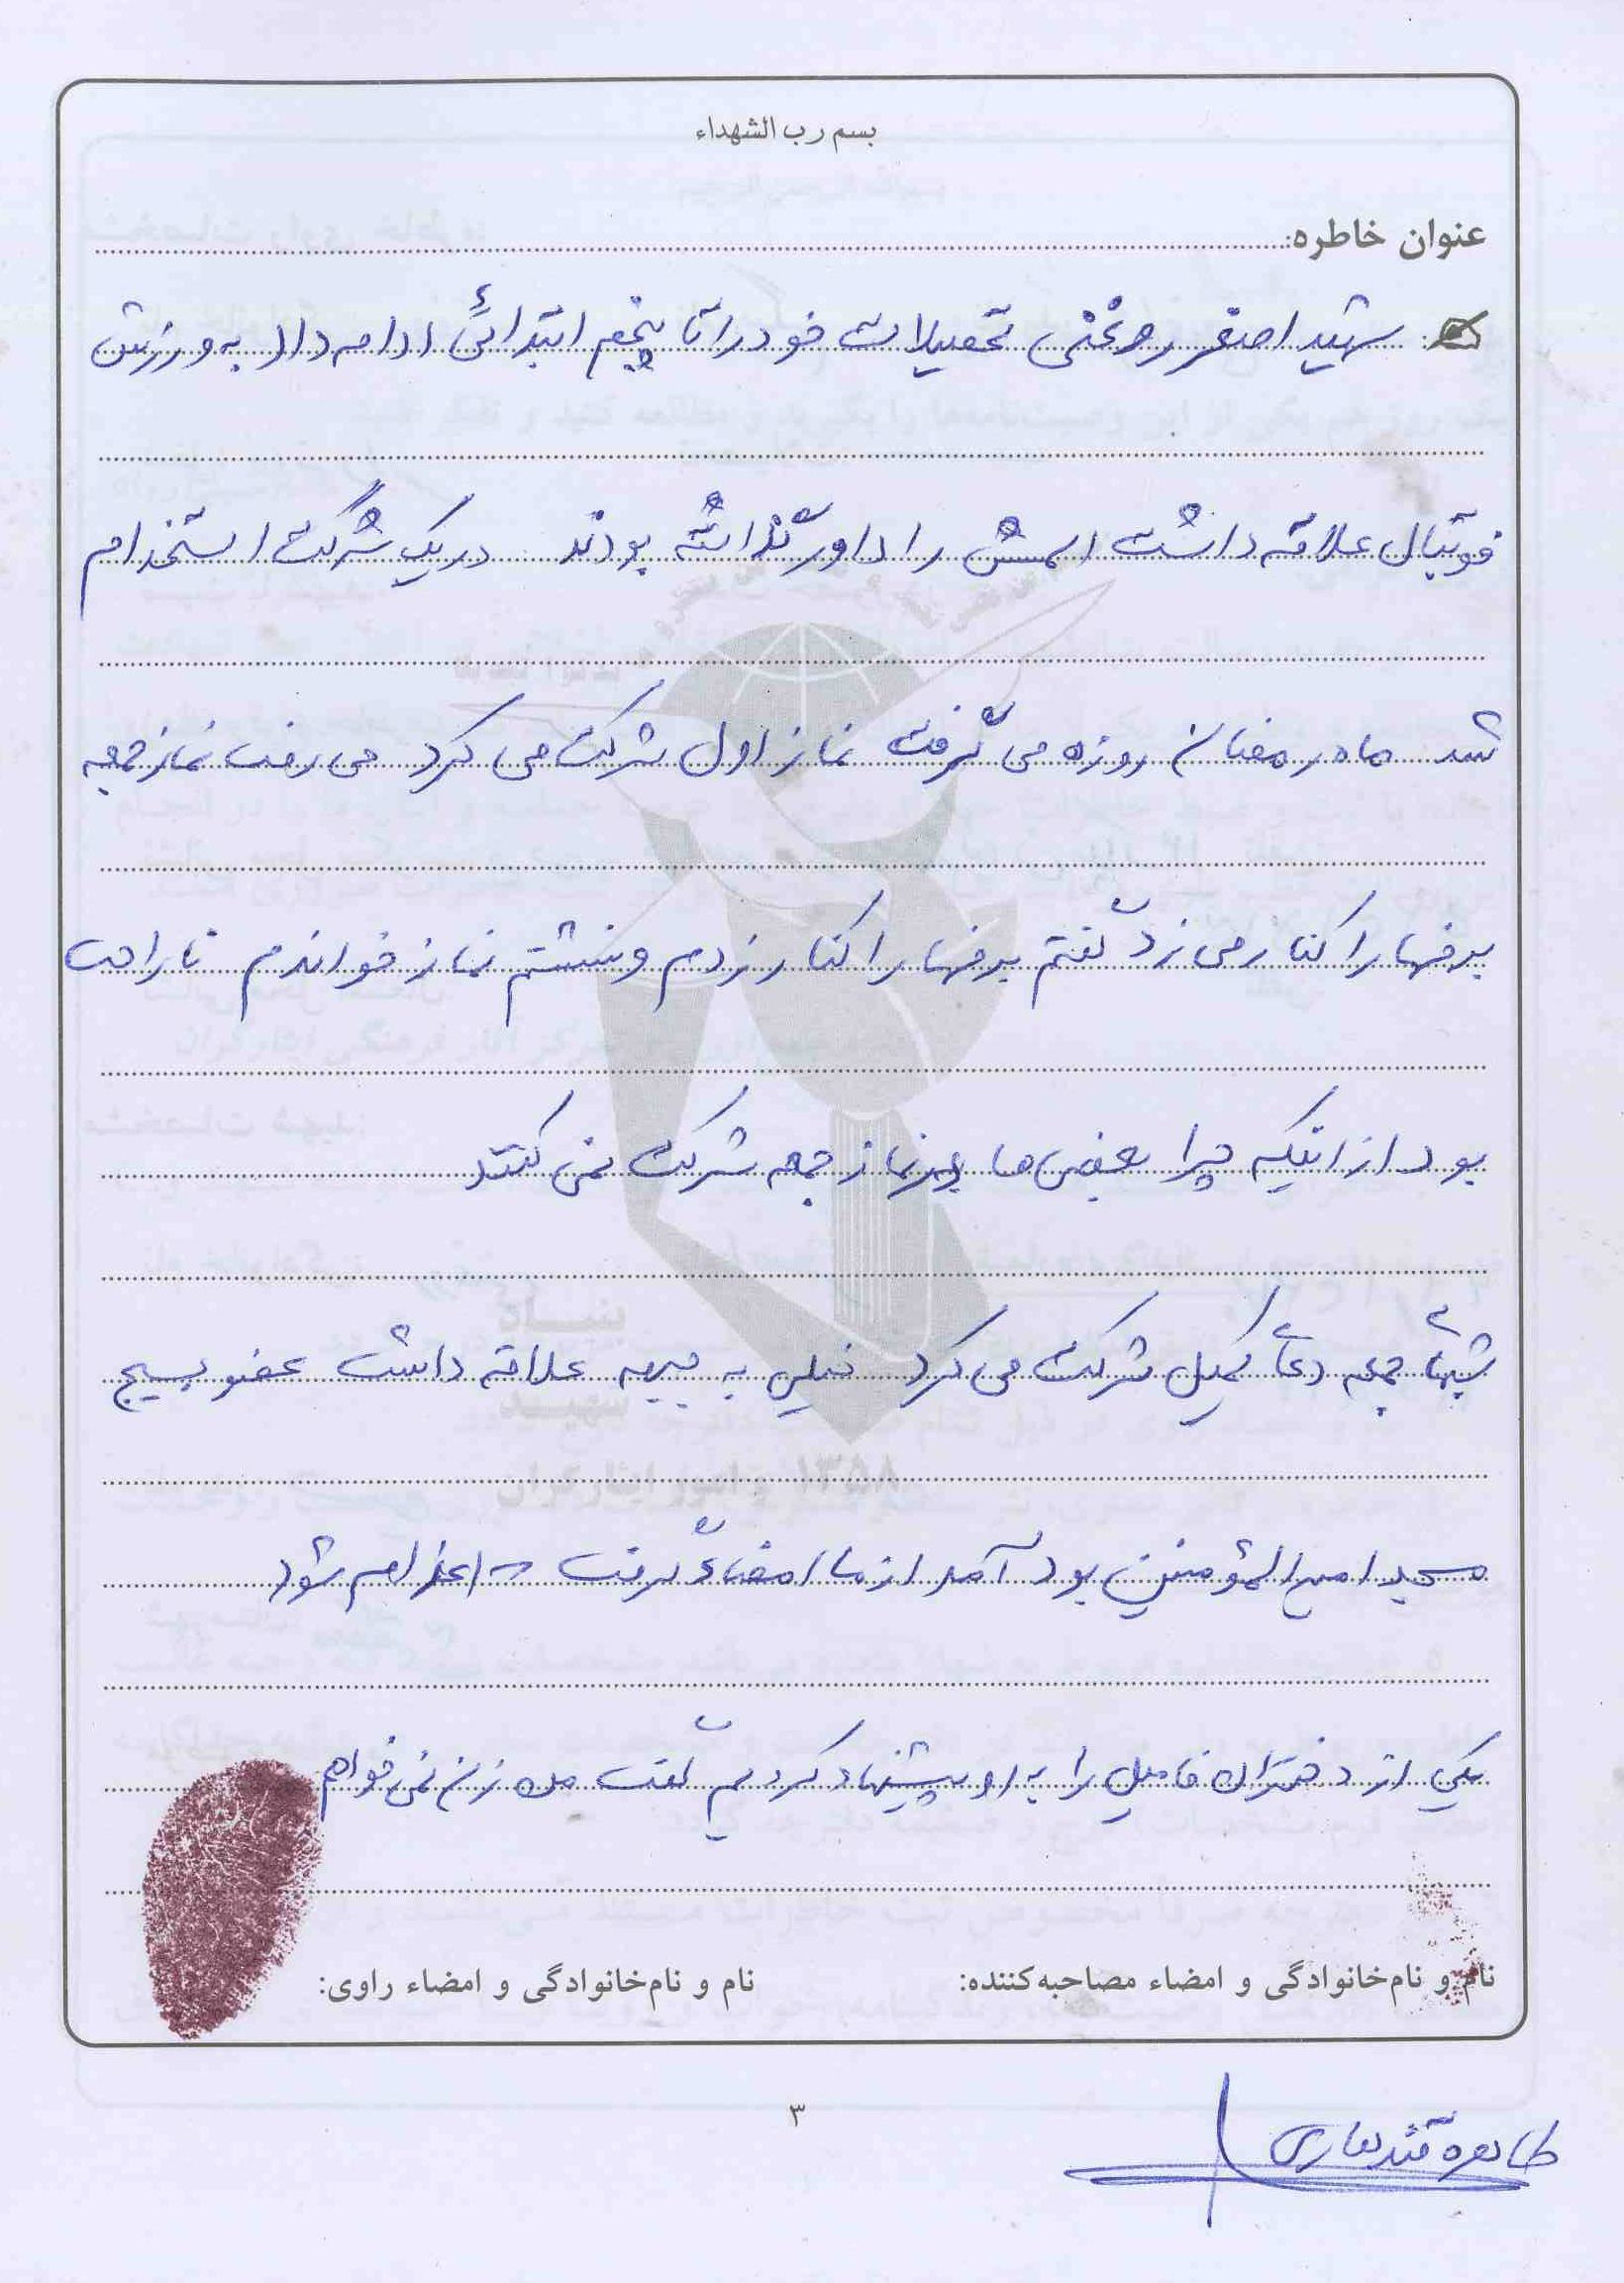 بسم رب الشهداء
عنوان خاطره:
شهید اصغر روغنی تحصیلات خود را تا پنجم ابتدائی ادامه داد به ورزش
فوتبال علاقه داشت اسمش را داور گذاشته بودند در یک شرکت استخدام
شد ماه رمضان روزه می گرفت نماز اول شرکت می کرد می رفت نماز جمعه
برفها را کنار می زد گفتم برفها را کنار زدم و نشستم نماز خواندم ناراحت
بود از اینکه چرا بعضی ها در نماز جمعه شرکت نمی کنند
شبهای جمعه دعای کمیل شرکت می کرد خیلی به جبهه علاقه داشت عضو بسیج
مسجد امیرالمؤمنین بود آمد از ما امضاء گرفت اعزام شود
یکی از دختران فامیل را به او پیشنهاد کردیم گفت من زن نمی خواهم
نام و نام‌خانوادگی و امضاء مصاحبه‌کننده: نام و نام‌خانوادگی و امضاء راوی:
۳
طاهره قندهاری
بنیاد
شهید
و امور ایثارگران ۱۳۵۸